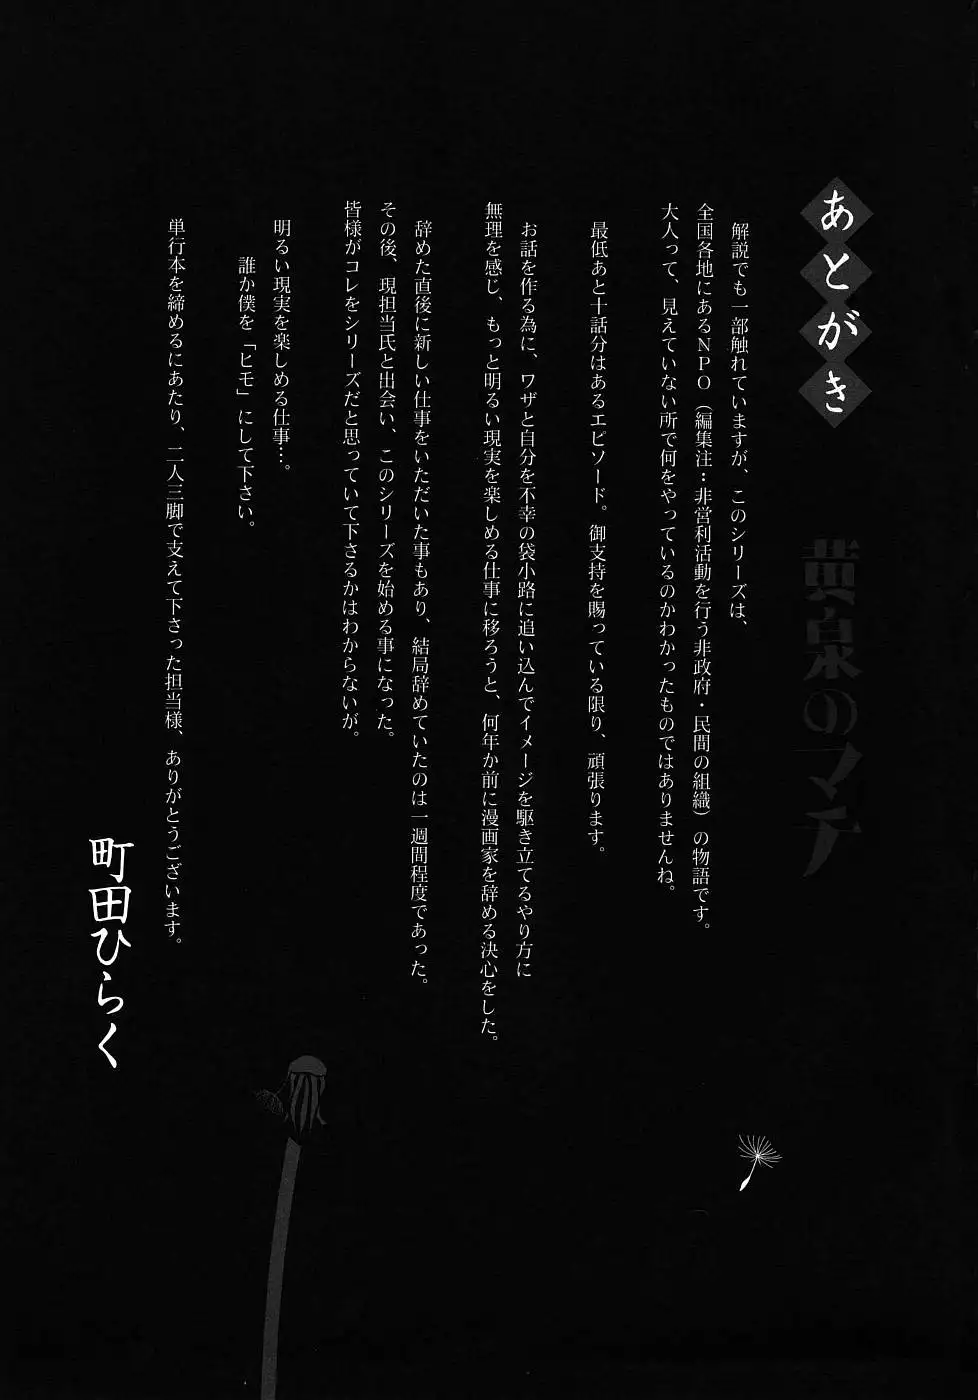 あとがき
黄泉のマチ
解説でも一部触れていますが、このシリーズは、
全国各地にあるNPO（編集注：非営利活動を行う非政府・民間の組織）の物語です。
大人って、見えていない所で何をやっているのかわかったものではありませんね。
最低あと十話分はあるエピソード。御支持を賜っている限り、頑張ります。
お話を作る為に、ワザと自分を不幸の袋小路に追い込んでイメージを駆き立てるやり方に
無理を感じ、もっと明るい現実を楽しめる仕事に移ろうと、何年か前に漫画家を辞める決心をした。
辞めた直後に新しい仕事をいただいた事もあり、結局辞めていたのは一週間程度であった。
その後、現担当氏と出会い、このシリーズを始める事になった。
皆様がコレをシリーズだと思っていて下さるかはわからないが。
明るい現実を楽しめる仕事…。
誰か僕を「ヒモ」にして下さい。
単行本を締めるにあたり、二人三脚で支えて下さった担当様、ありがとうございます。
町田ひらく